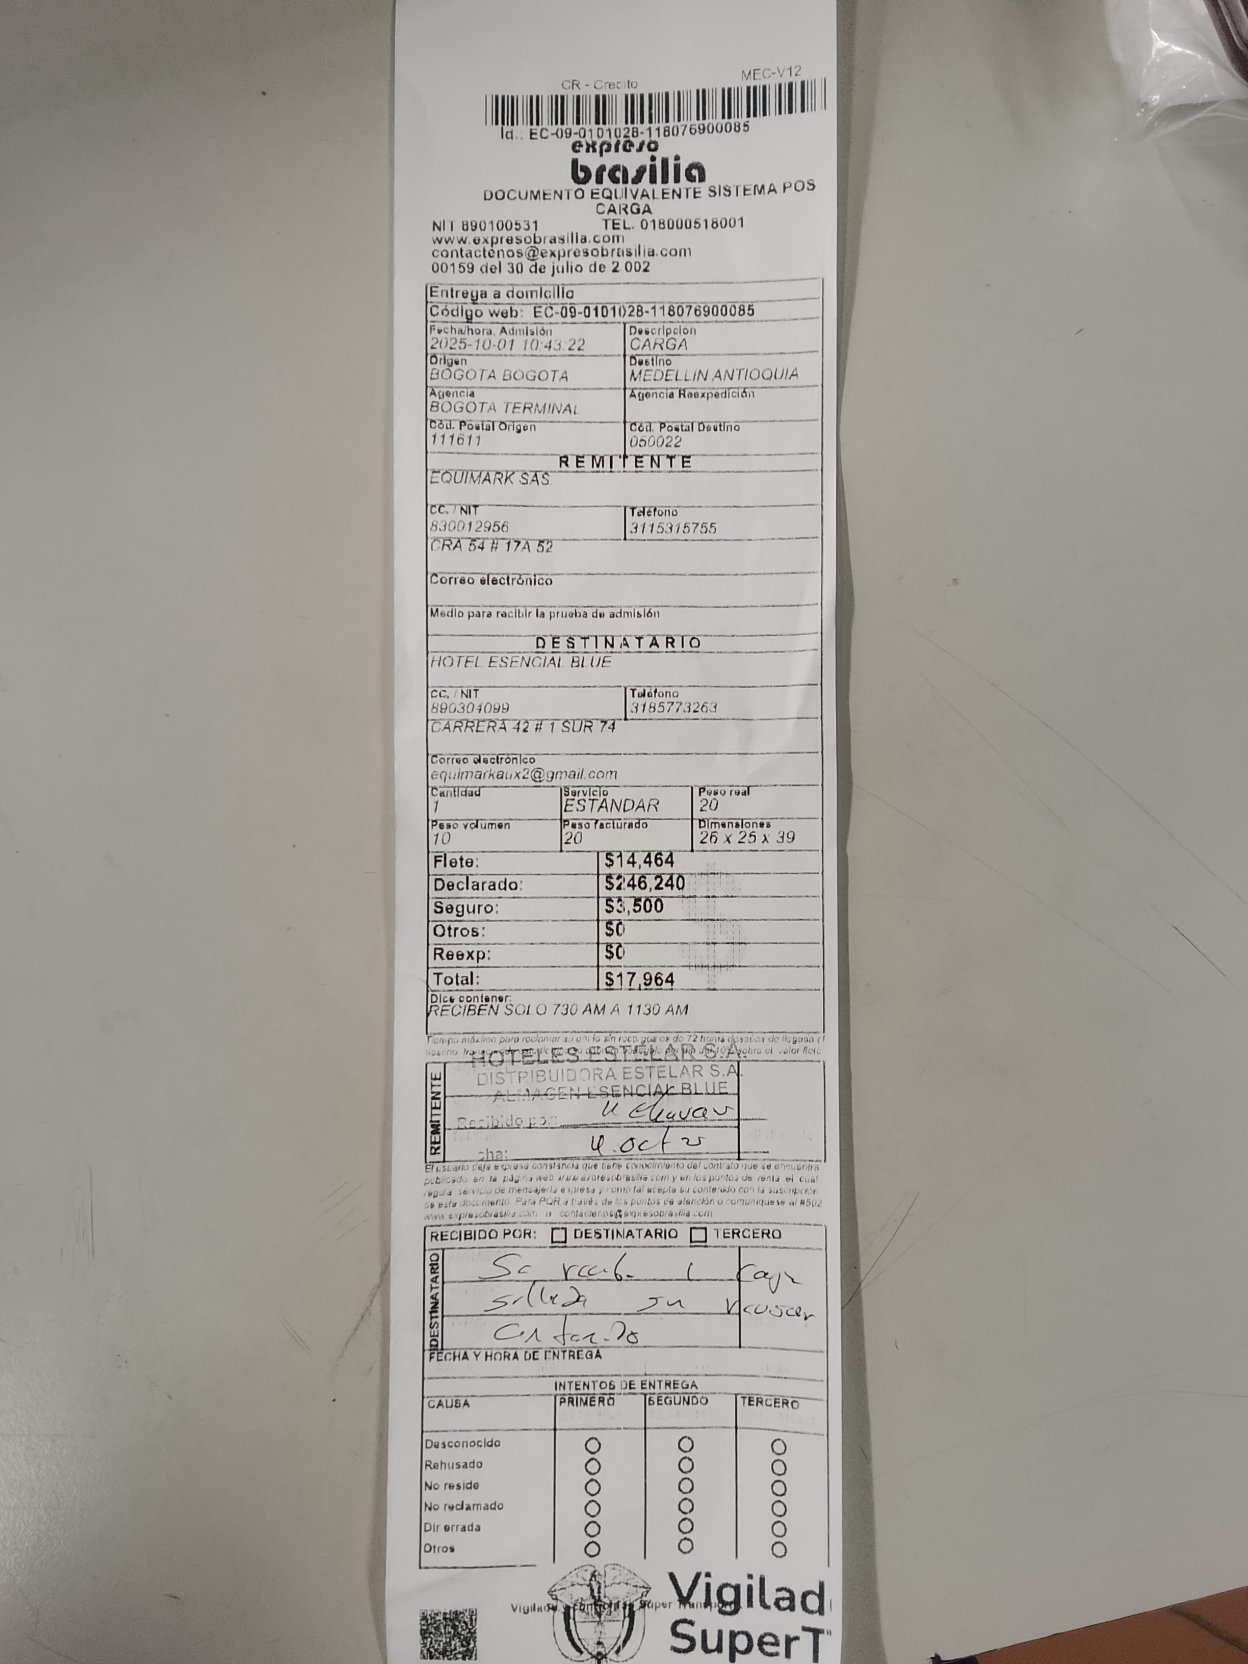 CR - Credito
MEC-V12
Id.: EC-09-0101028-118076900085
expreso
brasilia
DOCUMENTO EQUIVALENTE SISTEMA POS
CARGA
NIT 890100531 TEL. 018000518001
www.expresobrasilia.com
contactenos@expresobrasilia.com
00159 del 30 de julio de 2 002
Entrega a domicilio
Código web: EC-09-0101028-118076900085
Fecha/hora, Admisión Descripcion
2025-10-01 10:43:22 CARGA
Origen Destino
BOGOTA BOGOTA MEDELLIN ANTIOQUIA
Agencia Agencia Reexpedición
BOGOTA TERMINAL
Cód. Postal Origen Cód. Postal Destino
111611 050022
REMITENTE
EQUIMARK SAS
CC. / NIT Teléfono
830012956 3115315755
CRA 54 # 17A 52
Correo electrónico
Medio para recibir la prueba de admisión
DESTINATARIO
HOTEL ESENCIAL BLUE
CC. / NIT Teléfono
890304099 3185773263
CARRERA 42 # 1 SUR 74
Correo electrónico
equimarkaux2@gmail.com
Cantidad Servicio Peso real
1 ESTANDAR 20
Peso volumen Peso facturado Dimensiones
10 20 26 x 25 x 39
Flete: $14,464
Declarado: $246,240
Seguro: $3,500
Otros: $0
Reexp: $0
Total: $17,964
Dice contener:
RECIBEN SOLO 730 AM A 1130 AM
Tiempo máximo para reclamar su envío sin recargos es de 72 horas después de llegada
HOTELES ESTELAR S.A.
DISTRIBUIDORA ESTELAR S.A.
ALMACEN ESENCIAL BLUE
REMITENTE
Recibido por:
cha: 4. oct 25
El usuario deja expresa constancia que tiene conocimiento del contrato que se encuentra
publicado en la página web www.expresobrasilia.com y en los puntos de venta el cual
regula servicio de mensajería expresa y como tal acepta su contenido con la suscripción
de este documento. Para PQR a través de los puntos de atención o comuníquese al #502
www.expresobrasilia.com o contactenos@expresobrasilia.com
RECIBIDO POR: DESTINATARIO TERCERO
DESTINATARIO
Se recibe 1 caja
sellada sin revisar
contenido
FECHA Y HORA DE ENTREGA
INTENTOS DE ENTREGA
CAUSA PRIMERO SEGUNDO TERCERO
Desconocido
Rehusado
No reside
No reclamado
Dir errada
Otros
Vigilad
SuperT